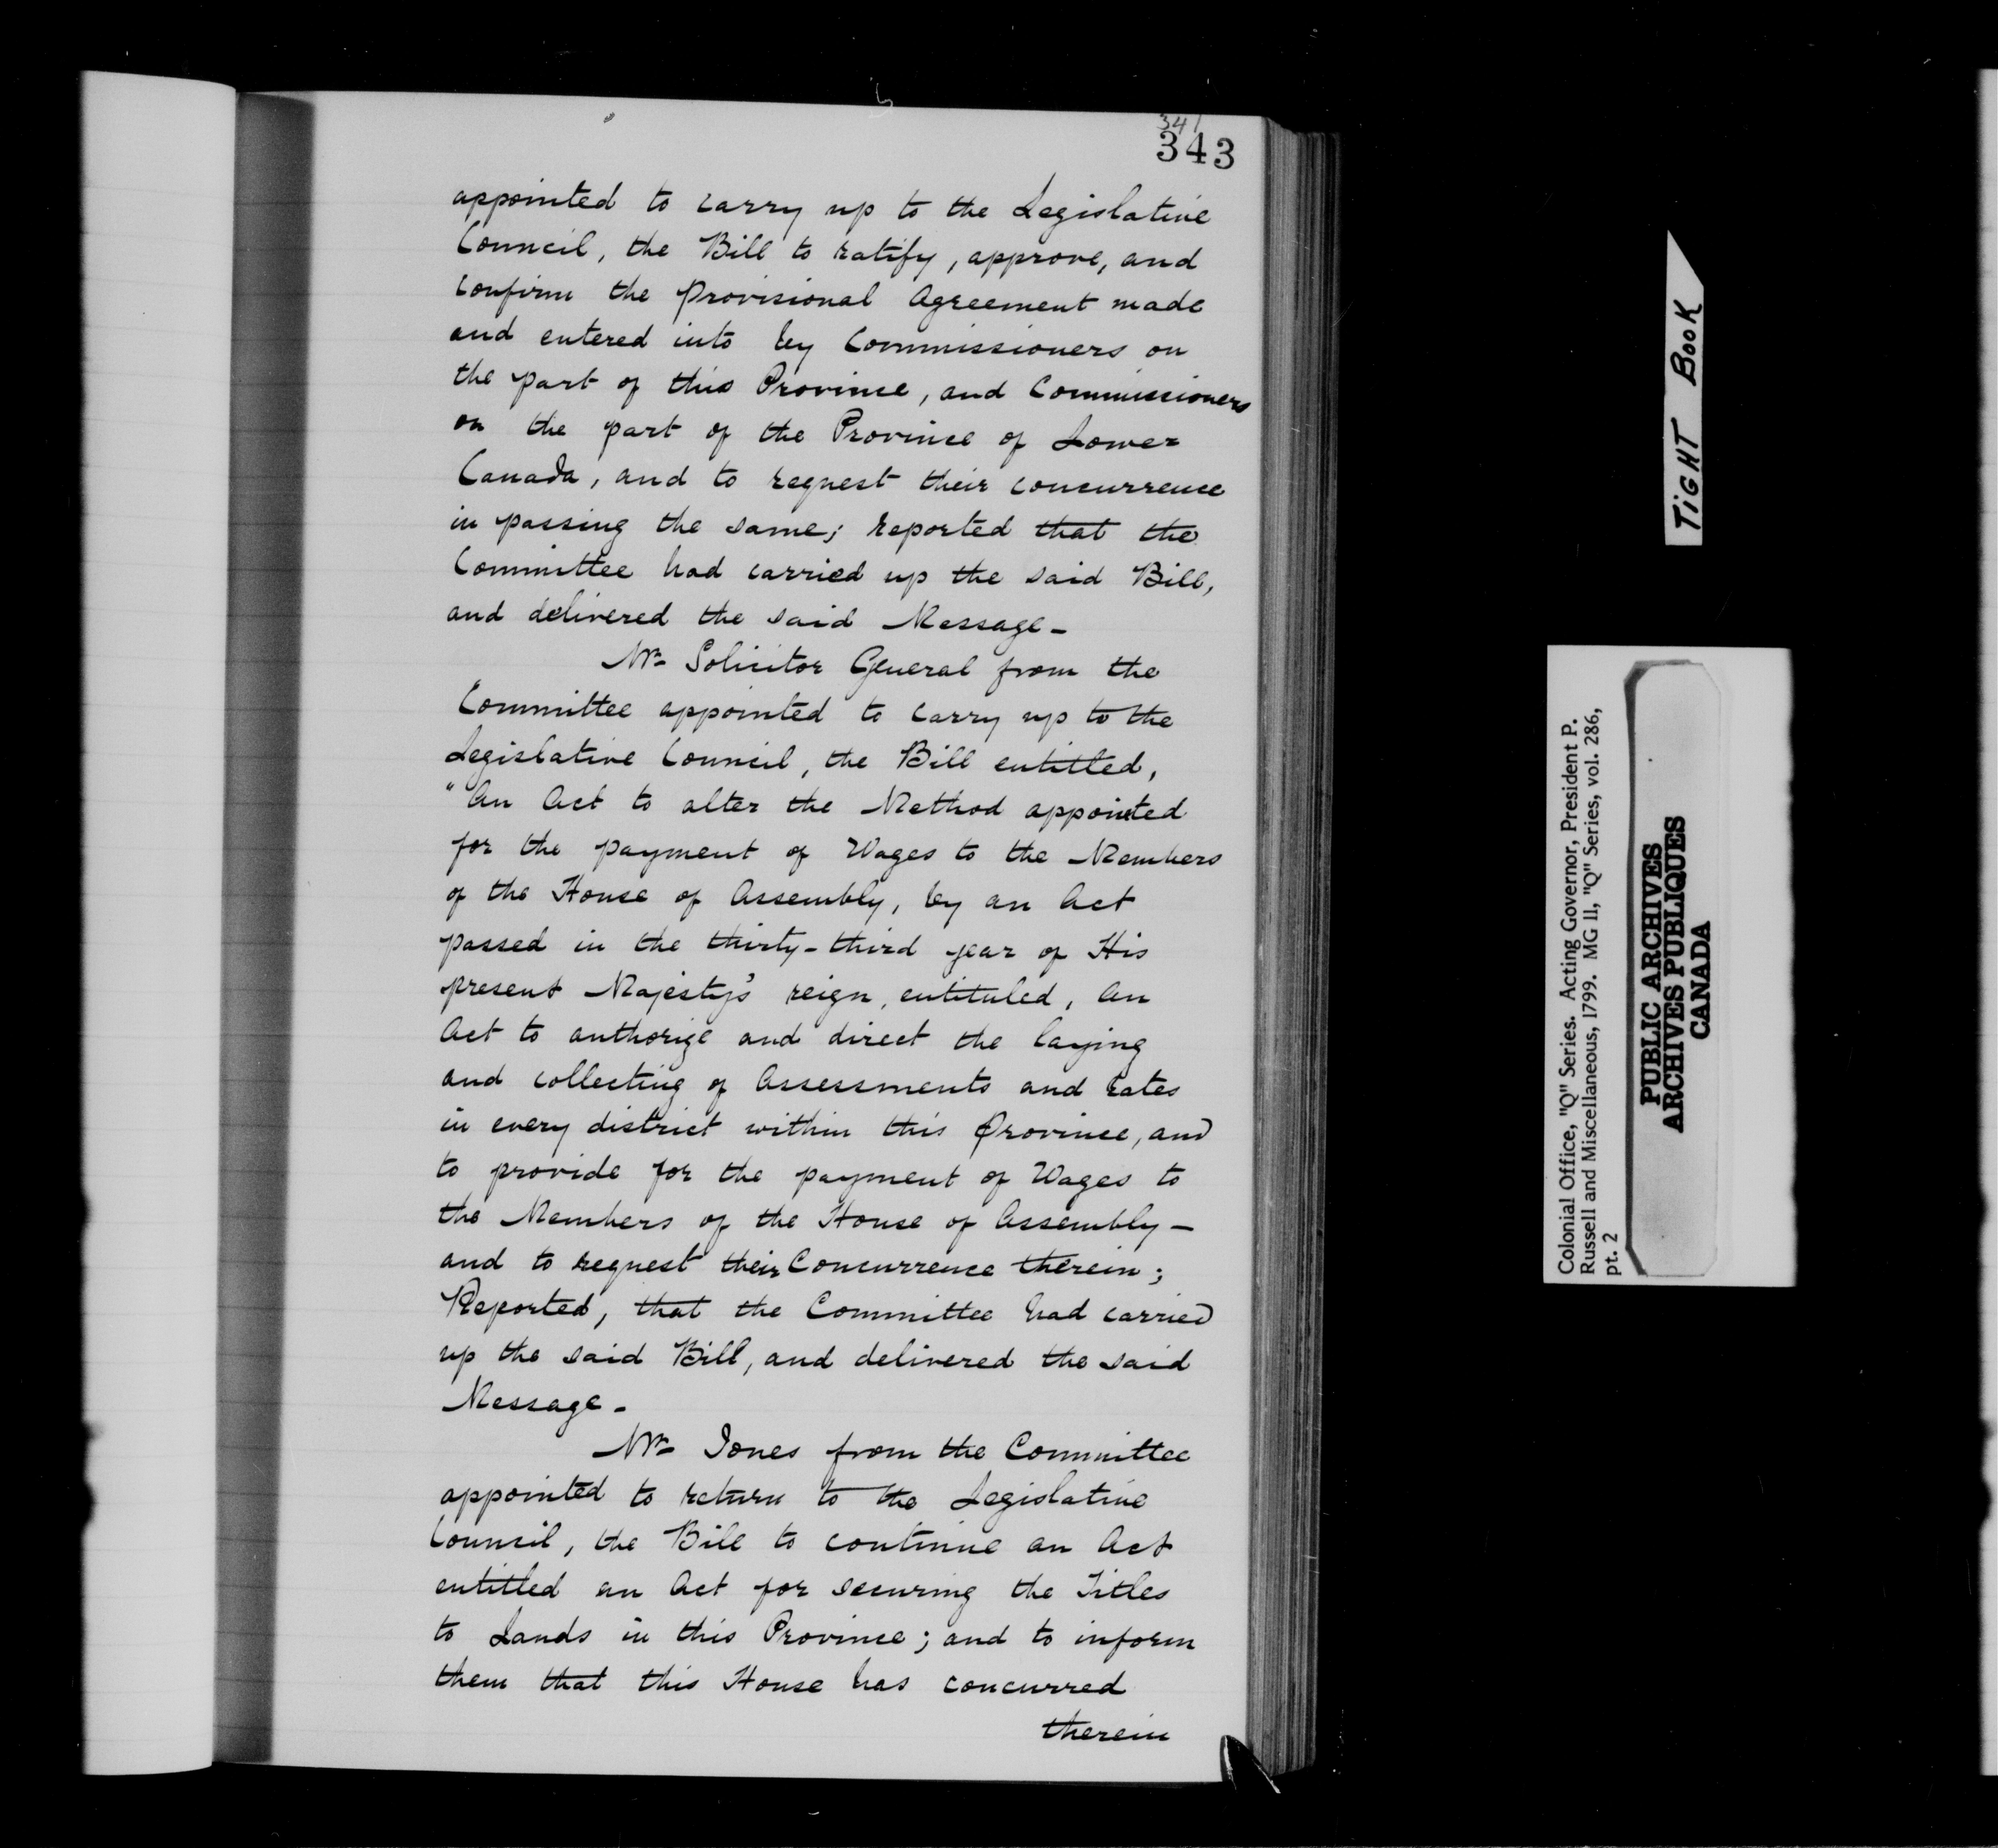 341
343
appointed to carry up to the Legislative
Council, the Bill to ratify, approve, and
confirm the Provisional Agreement made
and entered into by Commissioners on
the part of this Province, and Commissioners
on the part of the Province of Lower
Canada, and to request their concurrence
in passing the same; reported that the
Committee had carried up the said Bill,
and delivered the said Message-
Mr Solicitor General from the
Committee appointed to carry up to the
Legislative Council, the Bill entitled,
"An Act to alter the Method appointed
for the payment of Wages to the Members
of the House of Assembly, by an Act
passed in the thirty-third year of His
present Majesty's reign, entituled, An
Act to authorize and direct the laying
and collecting of Assessments and rates
in every district within this Province, and
to provide for the payment of Wages to
the Members of the House of Assembly-
and to request their Concurrence therein;
Reported, that the Committee had carried
up the said Bill, and delivered the said
Message-
Mr Jones from the Committee
appointed to return to the Legislative
Council, the Bill to continue an Act
entitled an Act for securing the Titles
to Lands in this Province; and to inform
them that this House has concurred
therein
TIGHT BOOK
Colonial Office, "Q" Series. Acting Governor, President P.
Russell and Miscellaneous, 1799. MG 11, "Q" Series, vol. 286,
pt. 2
PUBLIC ARCHIVES
ARCHIVES PUBLIQUES
CANADA